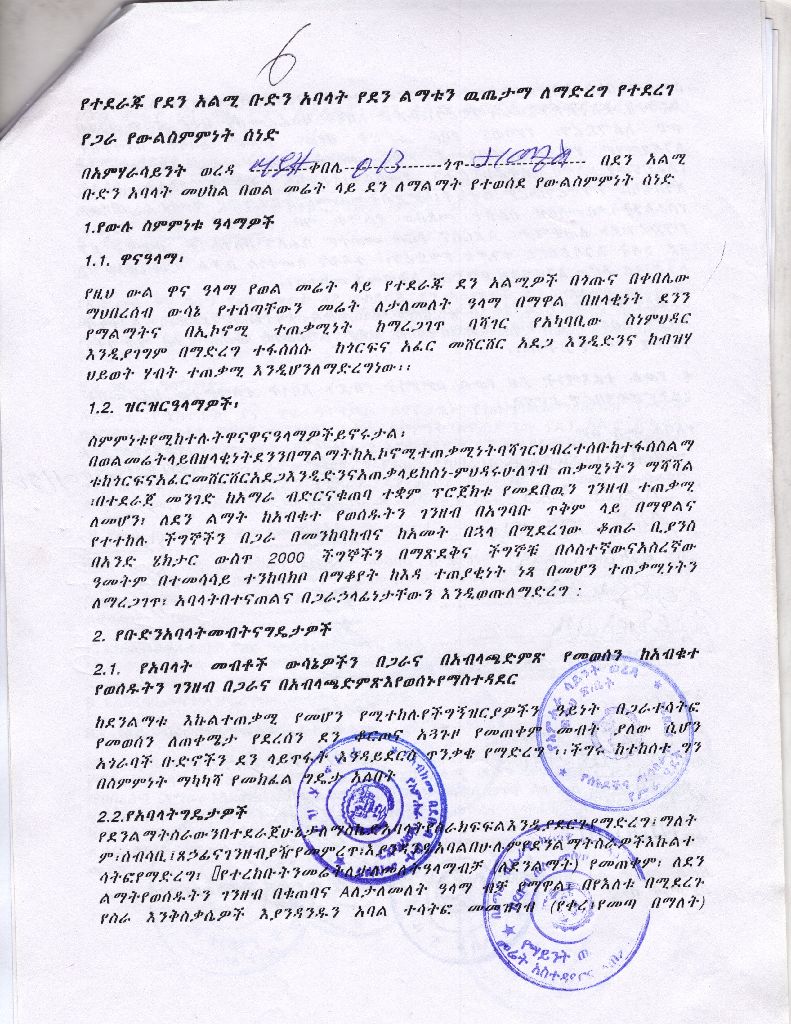 6
የተደራጁ የደን አልሚ ቡድን አባላት የደን ልማቱን ዉጤታማ ለማድረግ የተደረገ
የጋራ የውልስምምነት ሰነድ
በአምሃራሳይንት ወረዳ ቀበሌ 013 ጎጥ በደን አልሚ
ቡድን አባላት መሀከል በወል መሬት ላይ ደን ለማልማት የተወሰደ የውልስምምነት ሰነድ
1.የውሉ ስምምነቱ ዓላማዎች
1.1. ዋናዓላማ፡
የዚህ ውል ዋና ዓላማ የወል መሬት ላይ የተደራጁ ደን አልሚዎች በጎጡና በቀበሌው
ማህበረሰብ ውሳኔ የተሰጣቸውን መሬት ለታለመለት ዓላማ በማዋል በዘላቂነት ደንን
የማልማትና በኢኮኖሚ ተጠቃሚነት ከማረጋገጥ ባሻገር የአካባቢው ስነምህዳር
እንዲያገግም በማድረግ ተፋሰሱ ከጎርፍና አፈር መሸርሸር አደጋ እንዲድንና ከብዝሃ
ህይወት ሃብት ተጠቃሚ እንዲሆንለማድረግነው፡፡
1.2. ዝርዝርዓላማዎች፡
ስምምነቱየሚከተሉትዋናዋናዓላማዎችይኖሩታል፡
በወልመሬትላይበዘላቂነትደንንበማልማትከኢኮኖሚተጠቃሚነትባሻገርህብረተሰቡከተፋሰስልማ
ቱከጎርፍናአፈርመሸርሸርአደጋእንዲድንናአጠቃላይከስነ-ምህዳሩሁለገብ ጠቃሚነትን ማሻሻል
፣በተደራጀ መንገድ ከአማራ ብድርናቁጠባ ተቋም ፕሮጀክቱ የመደበዉን ገንዘብ ተጠቃሚ
ለመሆን፣ ለደን ልማት ከአብቁተ የወሰዱትን ገንዘብ በአግባቡ ጥቅም ላይ በማዋልና
የተተከሉ ችግኞችን በጋራ በመንከባከብና ከአመት በኋላ በሚደረገው ቆጠራ ቢያንስ
በአንድ ሄክታር ውስጥ 2000 ችግኞችን በማጽደቅና ችግኞቹ በሶስተኛውናአስረኛው
ዓመትም በተመሳሳይ ተንከባክቦ በማቆየት ከእዳ ተጠያቂነት ነጻ በመሆን ተጠቃሚነትን
ለማረጋገጥ፣ አባላትበተናጠልና በጋራኃላፊነታቸውን እንዲወጡለማድረግ ፡
2. የቡድንአባላትመብትናግዴታዎች
2.1. የአባላት መብቶች ውሳኔዎችን በጋራና በአብላጫድምጽ የመወሰን ከአብቁተ
የወሰዱትን ገንዘብ በጋራና በአብላጫድምጽእየወሰኑየማስተዳደር
ከደንልማቱ እኩልተጠቃሚ የመሆን የሚተከሉየችግኝዝርያዎችን ዓይነት በጋራተሳትፎ
የመወሰን ለጠቀሜታ የደረሰን ደን ቆርጦና አጓጉዞ የመጠቀም መብት ያለው ሲሆን
አጎራባች ቡድኖችን ደን ላይጥፋት እንዳይደርስ ጥንቃቄ የማድረግ ፣፣ችግሩ ከተከሰተ ግን
በስምምነት ማካካሻ የመክፈል ግዴታ አለበት
2.2.የአባላትግዴታዎች
ሳትፎየማድረግ፣ (ለደንልማት) የመጠቀም፣ ለደን
ልማትየወሰዱትን ገንዘብ በቁጠባና Aለታለመለት ዓላማ ብቻ የማዋል፣ በየእለቱ በሚደረጉ
የስራ እንቅስቃሴዎች እያንዳንዱን አባል ተሳትፎ መመዝገብ (የቀረ፣የመጣ በማለት)